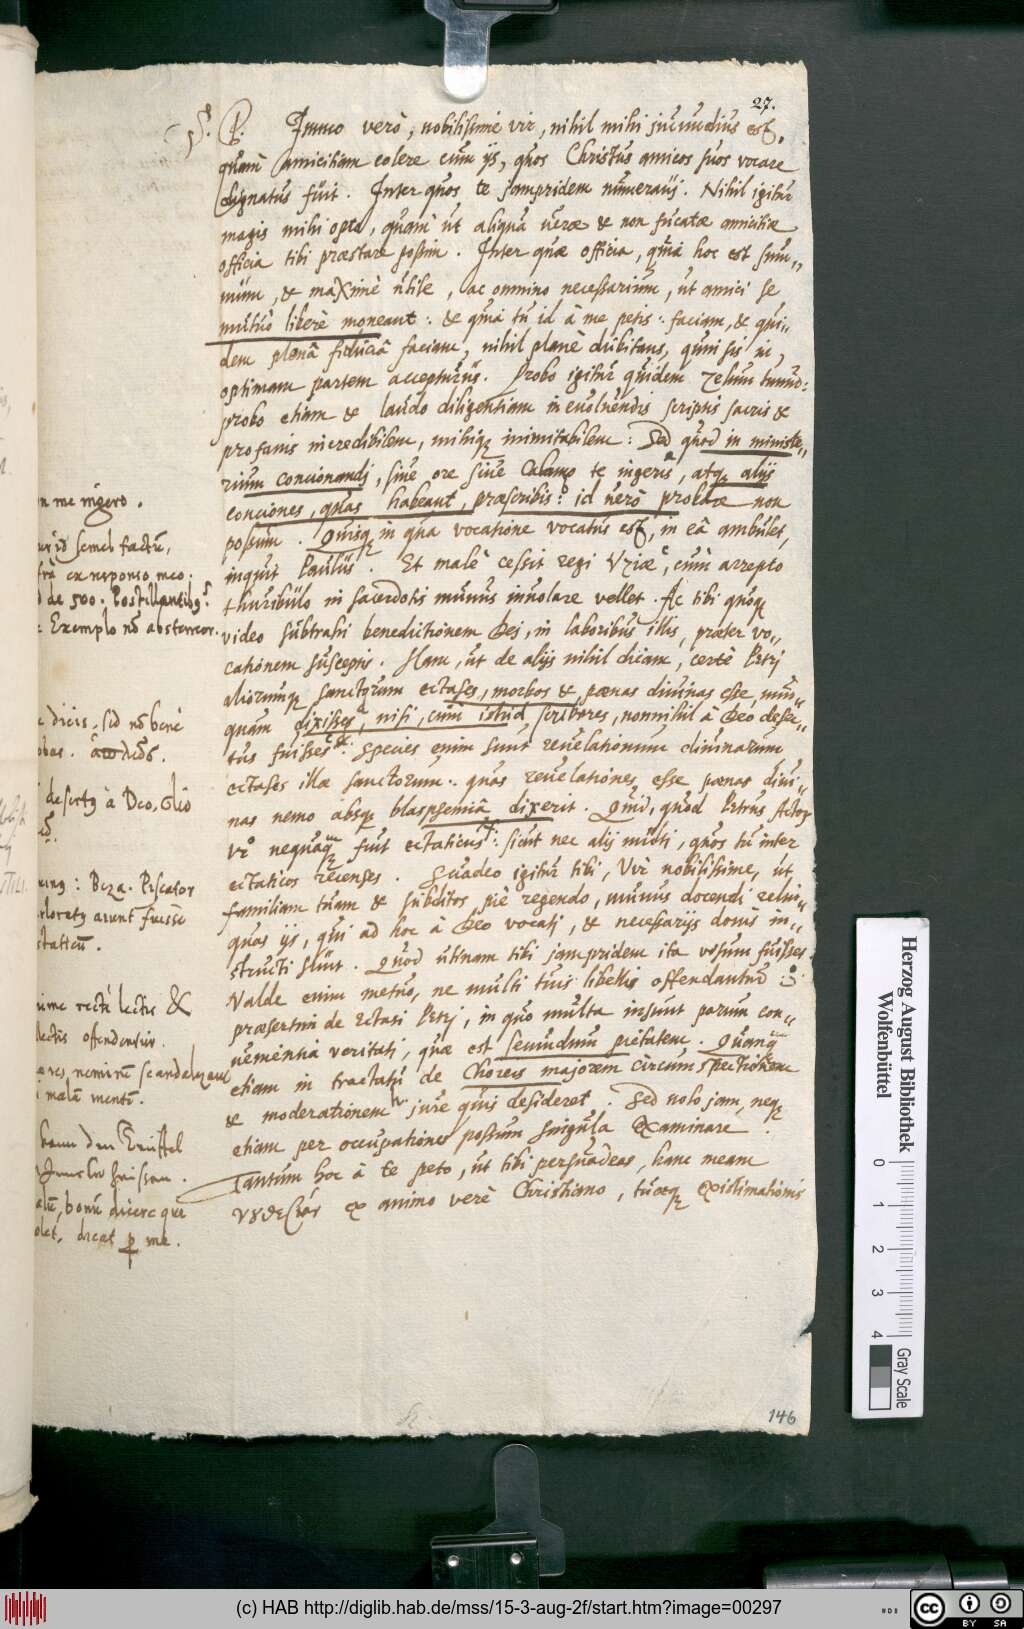 27.
S. P. Immo verò, nobilissime vir, nihil mihi jucundius est,
quàm amicitiam colere cum ijs, quos Christus amicos suos vocare
dignatus fuit. Inter quos te jampridem numeravi. Nihil igitur
magis mihi opto, quàm ut aliqua veræ & non fucatæ amicitiæ
officia tibi præstare possim. Inter quæ officia, quia hoc est sum„
mum, & maximè utile, ac omnino necessarium, ut amici se
mutuò liberè moneant: & quia tu id à me petis: faciam, & qui„
dem plenâ fiduciâ faciam, nihil planè dubitans, quin sis in
optimam partem accepturus. Probo igitur quidem zelum tuum:
probo etiam & laudo diligentiam in evoluendis scriptis sacris &
profanis incredibilem, mihiq; inimitabilem: Sed quod in ministe„
rium concionandi, sive ore sive calamo te ingeris, atq; alijs
conciones, quas habeant, præscribis: id verò probare non
possum. Quisq; in qua vocatione vocatus est, in eâ ambulet,
inquit Paulus. Et malè cessit regi Uziæ, cùm arrepto
thuribulo in sacerdotis munus involare vellet. Ac tibi quoq;
video subtrahi benedictionem Dei, in laboribus illis, præter vo„
cationem susceptis. Nam, ut de alijs nihil dicam, certè Petri
aliorumq; sanctorum ectases, morbos &, pœnas divinas esse, nun„
quam dixisses, nisi, cùm istud scriberes, nonnihil à Deo deser„
tus fuisses. Species enim sunt revelationum divinarum
ectases illæ sanctorum: quas revelationes esse pœnas divi„
nas nemo absq; blasphemiâ dixerit. Quid, quod Petrus Actor
10 nequaq̃ fuit ectaticus: sicut nec alij multi, quos tu inter
ectaticos recenses. Suadeo igitur tibi, Vir nobilissime, ut,
familiam tuam & subditos piè regendo, munus docendi relin„
quas ijs, qui ad hoc à Deo vocati, & necessarijs donis in„
structi sunt. Quod utinam tibi jampridem ita visum fuisset.
Valde enim metuo, ne multi tuis libellis offendantur:
præsertim de Ectasi Petri, in quo multa insunt parum con„
venientia veritati, quæ est secundum pietatem. Quanq̃
etiam in tractatu de Choreis majorem circumspectionem
& moderationem jure quis desideret. Sed nolo jam, neq;
etiam per occupationes possum singula examinare.
Tantum hoc à te peto, ut tibi persuadeas, hanc meam
ex animo verè Christiano, tuæq; existimationis
n me ingero.
id semel factu,
ex responso meo.
de 500. Postillantibus
Exemplo nō absterreor.
dicis, sed nō benè
desertꝰ à Deo,
Beza. Piscator
aiunt fuisse
staticū.
rectè lectis &
lectis offenduntur.
neminem scandalizant
malā mentē.
, bonū dicere qui
olet, dicat p me.
146
Herzog August Bibliothek
Wolfenbüttel
0 1 2 3 4
Gray Scale
(c) HAB http://diglib.hab.de/mss/15-3-aug-2f/start.htm?image=00297
cc BY SA